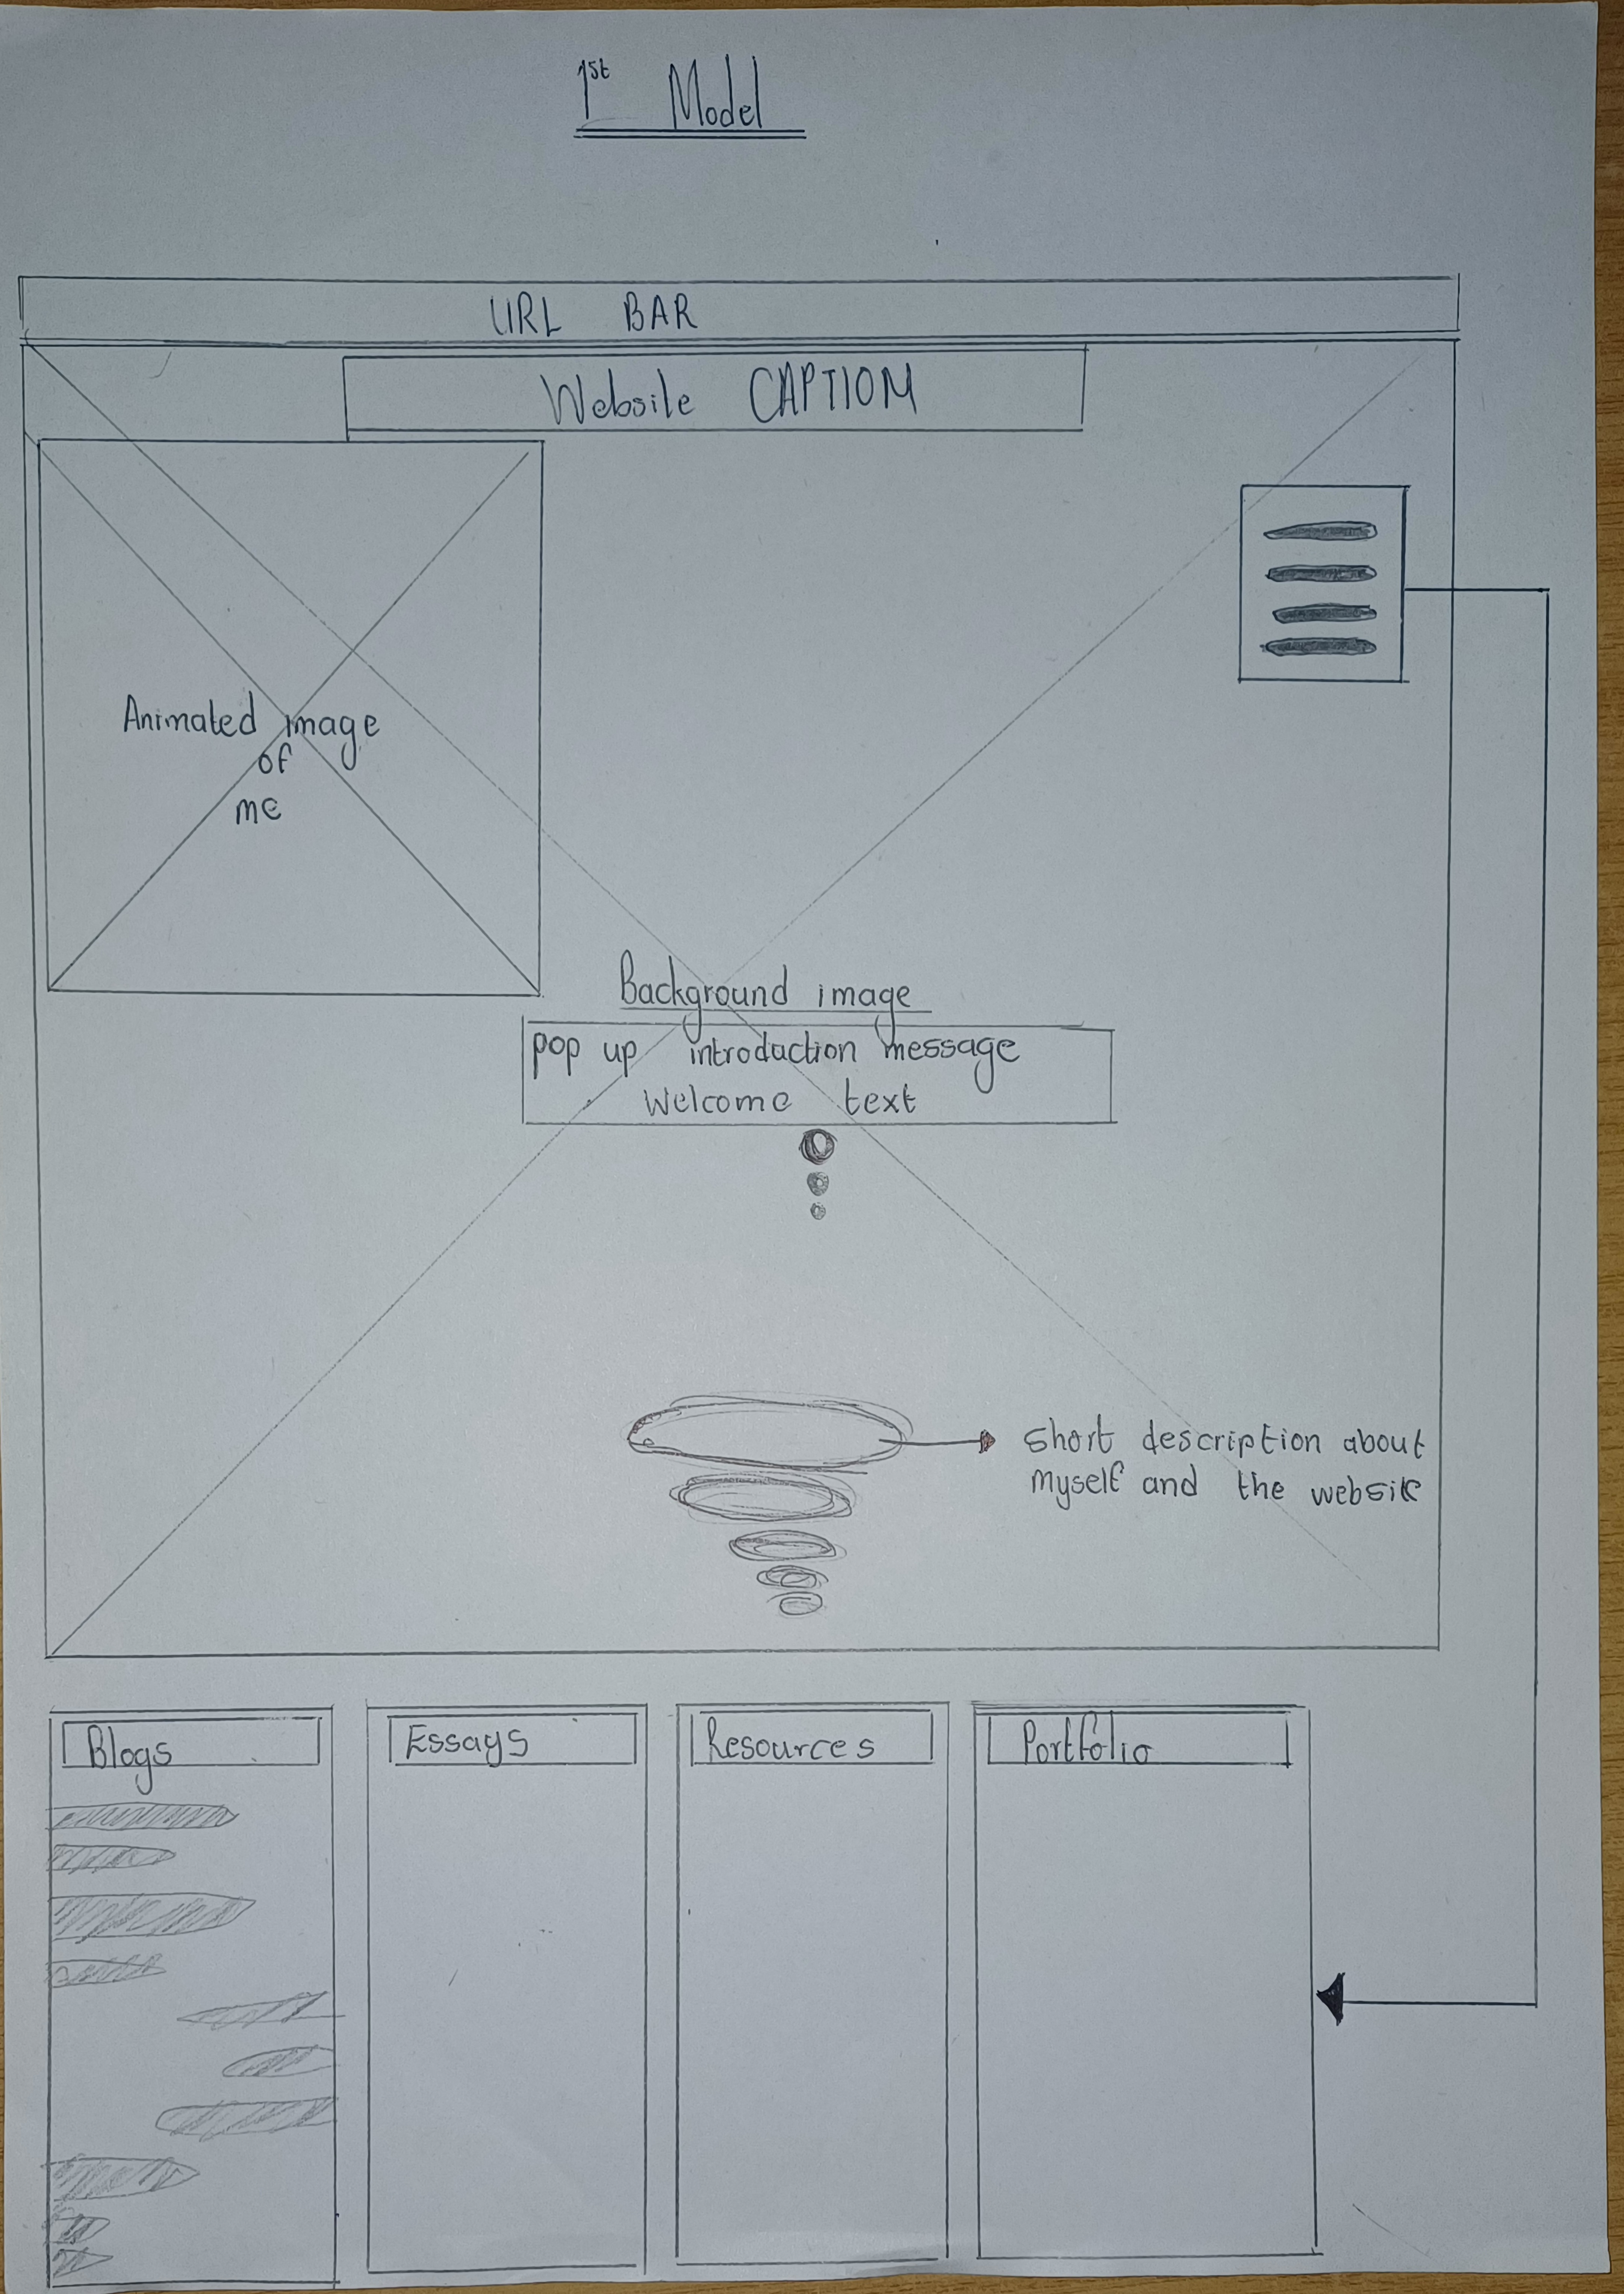 1st Model
URL BAR
Website CAPTION
Animated image
of
me
Background image
pop up introduction message
Welcome text
Short description about
myself and the website
Blogs
Essays
Resources
Portfolio